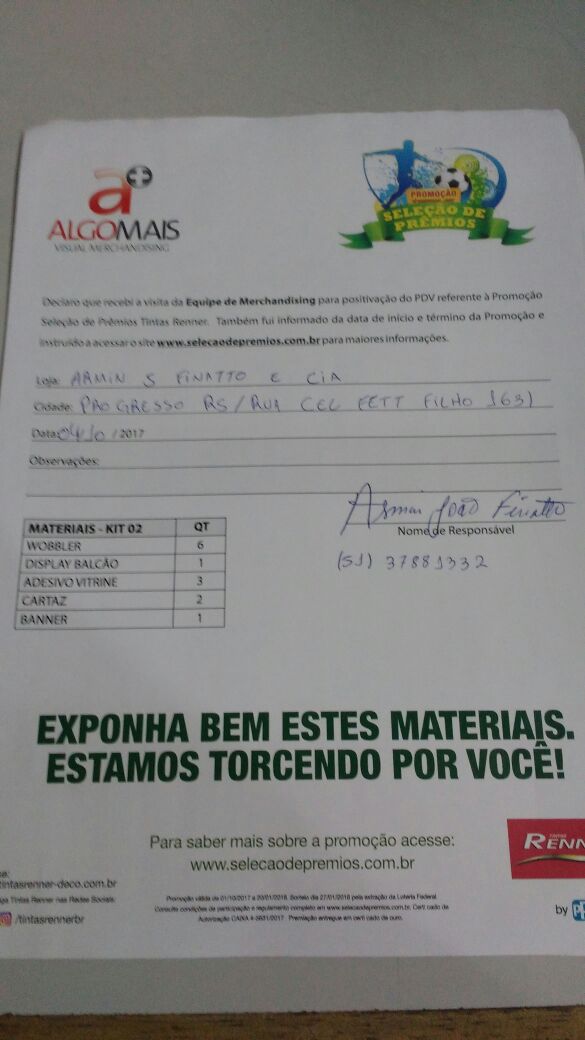 a+
ALGOMAIS
VISUAL MERCHANDISING
PROMOÇÃO
SELEÇÃO DE
PRÊMIOS
Declaro que recebi a visita da Equipe de Merchandising para positivação do PDV referente à Promoção
Seleção de Prêmios Tintas Renner. Também fui informado da data de início e término da Promoção e
instruído a acessar o site www.selecaodepremios.com.br para maiores informações.
Loja: ARMIN S FINATTO E CIA
Cidade: PROGRESSO RS/RUA CEL FETT FILHO 1631
Data: 04/10/2017
Observações:
Armin João Finatto
Nome de Responsável
(51) 37881332
MATERIAIS - KIT 02 QT
WOBBLER 6
DISPLAY BALCÃO 1
ADESIVO VITRINE 3
CARTAZ 2
BANNER 1
EXPONHA BEM ESTES MATERIAIS.
ESTAMOS TORCENDO POR VOCÊ!
Para saber mais sobre a promoção acesse:
www.selecaodepremios.com.br
TINTAS
RENN
se:
tintasrenner-deco.com.br
ga Tintas Renner nas Redes Sociais:
/tintasrennerbr
Promoção válida de 01/10/2017 a 20/01/2018. Sorteio dia 27/01/2018 pela extração da Loteria Federal.
Consulte condições de participação e regulamento completo em www.selecaodepremios.com.br. Certificado de
Autorização CAIXA 4-3631/2017. Premiação entregue em certificado de ouro.
by PP